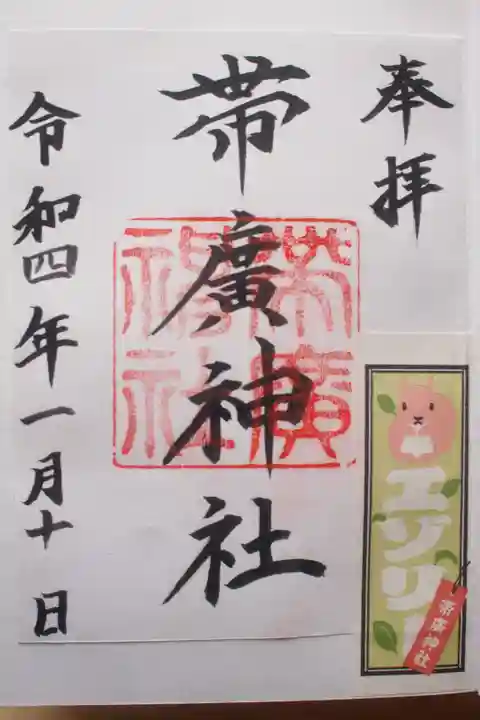 奉拝
帯廣神社
令和四年一月十日
帯廣神社
エゾリ
帯廣神社